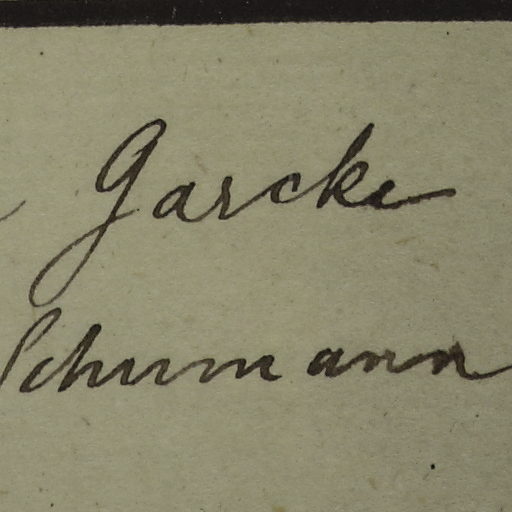 Garcke
Schumann